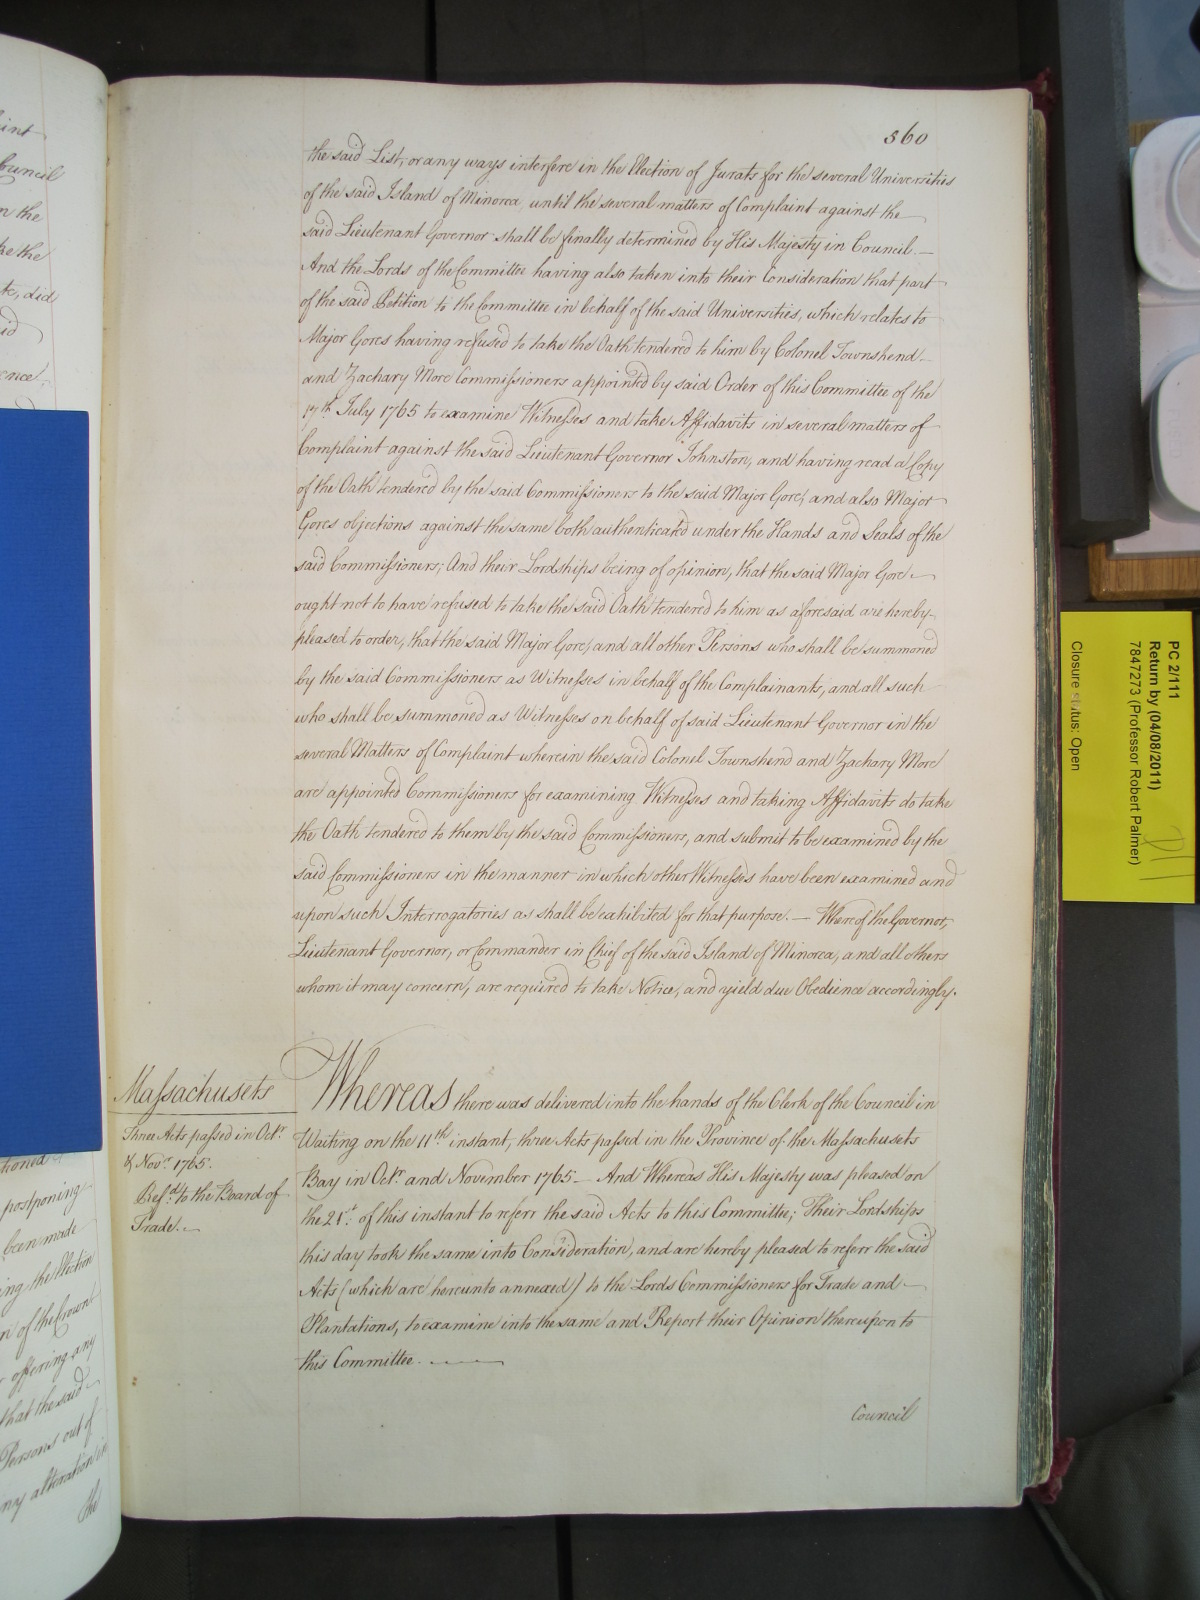 560
the said List, or any ways interfere in the Election of Jurats for the several Universities
of the said Island of Minorca, until the several matters of Complaint against the
said Lieutenant Governor shall be finally determined by His Majesty in Council. —
And the Lords of the Committee having also taken into their Consideration that part
of the said Petition to the Committee in behalf of the said Universities, which relates to
Major Gores having refused to take the Oath tendered to him by Colonel Townshend
and Zachary More Commissioners appointed by said Order of this Committee of the
17th July 1765 to examine Witnesses and take Affidavits in several matters of
Complaint against the said Lieutenant Governor Johnston, and having read a Copy
of the Oath tendered by the said Commissioners to the said Major Gore, and also Major
Gores objections against the same both authenticated under the Hands and Seals of the
said Commissioners; And their Lordships being of opinion, that the said Major Gore
ought not to have refused to take the said Oath tendered to him as aforesaid are hereby
pleased to order, that the said Major Gore, and all other Persons who shall be summoned
by the said Commissioners as Witnesses in behalf of the Complainants, and all such
who shall be summoned as Witnesses on behalf of said Lieutenant Governor in the
several Matters of Complaint wherein the said Colonel Townshend and Zachary More
are appointed Commissioners for examining Witnesses and taking Affidavits do take
the Oath tendered to them by the said Commissioners, and submit to be examined by the
said Commissioners in the manner in which other Witnesses have been examined and
upon such Interrogatories as shall be exhibited for that purpose. — Whereof the Governor,
Lieutenant Governor, or Commander in Chief of the said Island of Minorca, and all others
whom it may concern, are required to take Notice, and yield due Obedience accordingly.
Massachusets
Three Acts passed in Octr.
& Novr. 1765.
Refd. to the Board of
Trade.
Whereas there was delivered into the hands of the Clerk of the Council in
Waiting on the 11th instant, three Acts passed in the Province of the Massachusets
Bay in Octr. and November 1765 — And Whereas His Majesty was pleased on
the 21st. of this instant to referr the said Acts to this Committee; Their Lordships
this day took the same into Consideration, and are hereby pleased to referr the said
Acts (which are hereunto annexed) to the Lords Commissioners for Trade and
Plantations, to examine into the same and Report their Opinion thereupon to
this Committee.
Council
PC 2/111
Return by (04/08/2011)
7847273 (Professor Robert Palmer)
Closure status: Open
ouncil
n the
ke the
did
ence.
postponing
been made
ing the Election
n of the Crown
offering any
that the said
Persons out of
ny alteration in
the